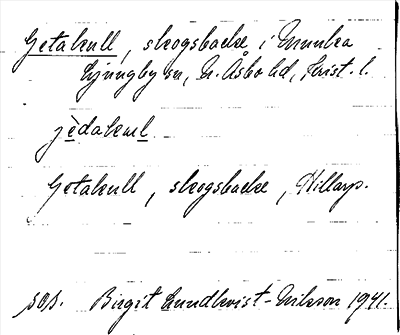 Getakull, skogsbacke i Munka
Ljungby sn, N. Åsbo hd, Krist. l.
jèdakuul
Getakull, skogsbacke, Hillarp.
sos. Birgit Lundkvist-Nilsson 1941.